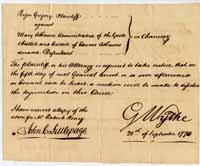 Roger Gregory Plaintiff
against
Mary Adams Administratrix of the Goods
Chattels and Credits of Thomas Adams
deceased Defendant
In Chancery
The plaintiff, or his Attorney is required to take notice, that on
the fifth day of next General Court, or so soon afterwards
as counsel can be heard, a motion will be made to dissolve
the injunction in this Cause
G Wythe
20th of September 1770
I have received a copy of the
above for Mr Patrick Henry
John C Littlepage